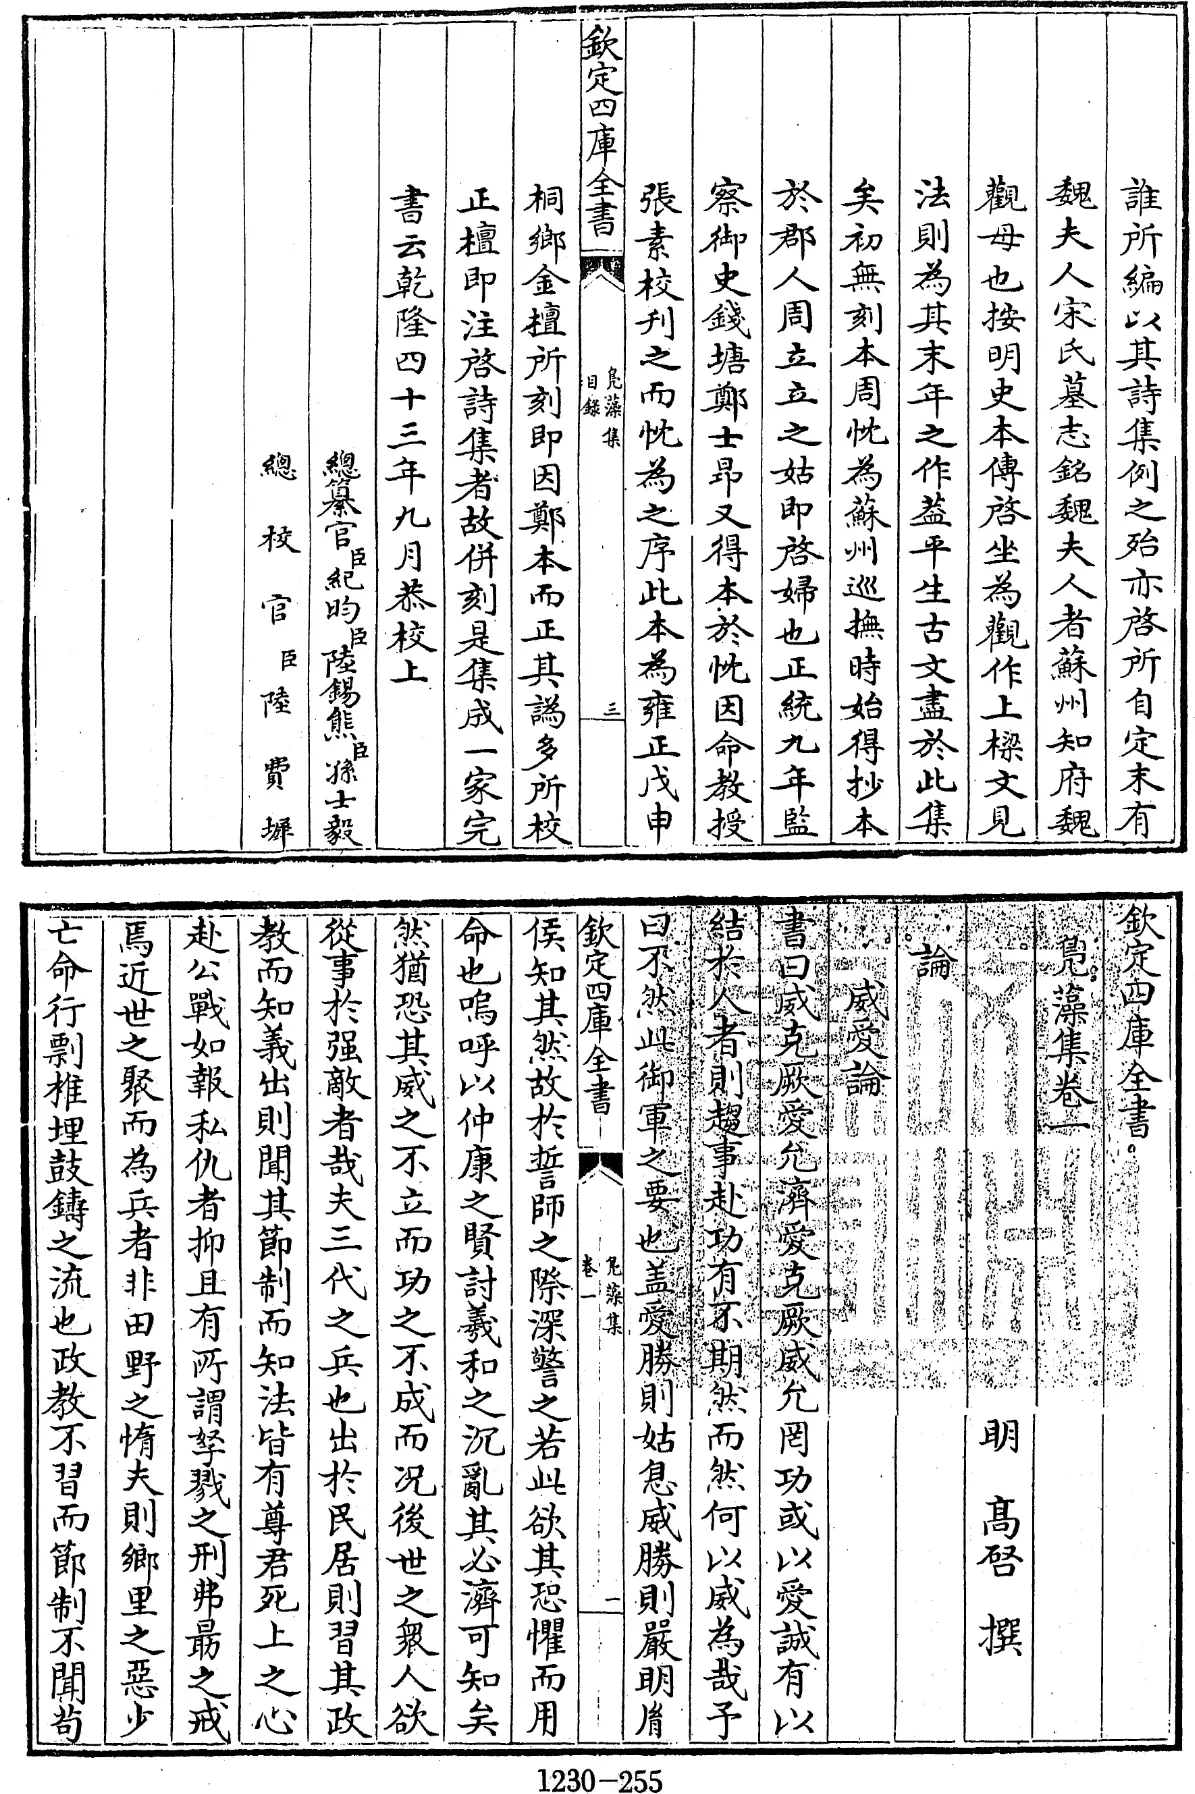 誰所編以其詩集例之殆亦啓所自定末有
魏夫人宋氏墓志銘魏夫人者蘇州知府魏
觀母也按明史本傳啓坐為觀作上樑文見
法則為其末年之作葢平生古文盡於此集
矣初無刻本周忱為蘇州巡撫時始得抄本
於郡人周立立之姑即啓婦也正統九年監
察御史錢塘鄭士昂又得本於忱因命教授
張素校刋之而忱為之序此本為雍正戊申
欽定四庫全書
鳬藻集
目錄
三
桐鄉金檀所刻即因鄭本而正其譌多所校
正檀即注啓詩集者故併刻是集成一家完
書云乾隆四十三年九月恭校上
總纂官臣紀昀臣陸錫熊臣孫士毅
總校官臣陸費墀
欽定四庫全書
鳬藻集卷一
明 髙啓 撰
論
威愛論
書曰威克厥愛允濟愛克厥威允罔功或以愛誠有以
結於人者則趨事赴功有不期然而然何以威為哉予
曰不然此御軍之要也盖愛勝則姑息威勝則嚴明胤
欽定四庫全書
鳬藻集
卷一
一
侯知其然故於誓師之際深警之若此欲其恐懼而用
命也嗚呼以仲康之賢討羲和之沉亂其必濟可知矣
然猶恐其威之不立而功之不成而况後世之衆人欲
從事於强敵者哉夫三代之兵也出於民居則習其政
教而知義出則聞其節制而知法皆有尊君死上之心
赴公戰如報私仇者抑且有所謂孥戮之刑弗勗之戒
焉近世之聚而為兵者非田野之惰夫則鄉里之惡少
亡命行剽椎埋鼓鑄之流也政教不習而節制不聞茍
1230-255